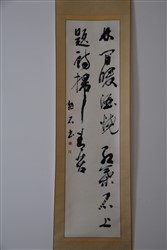 林間暖酒燒紅葉石上
題詩掃苔